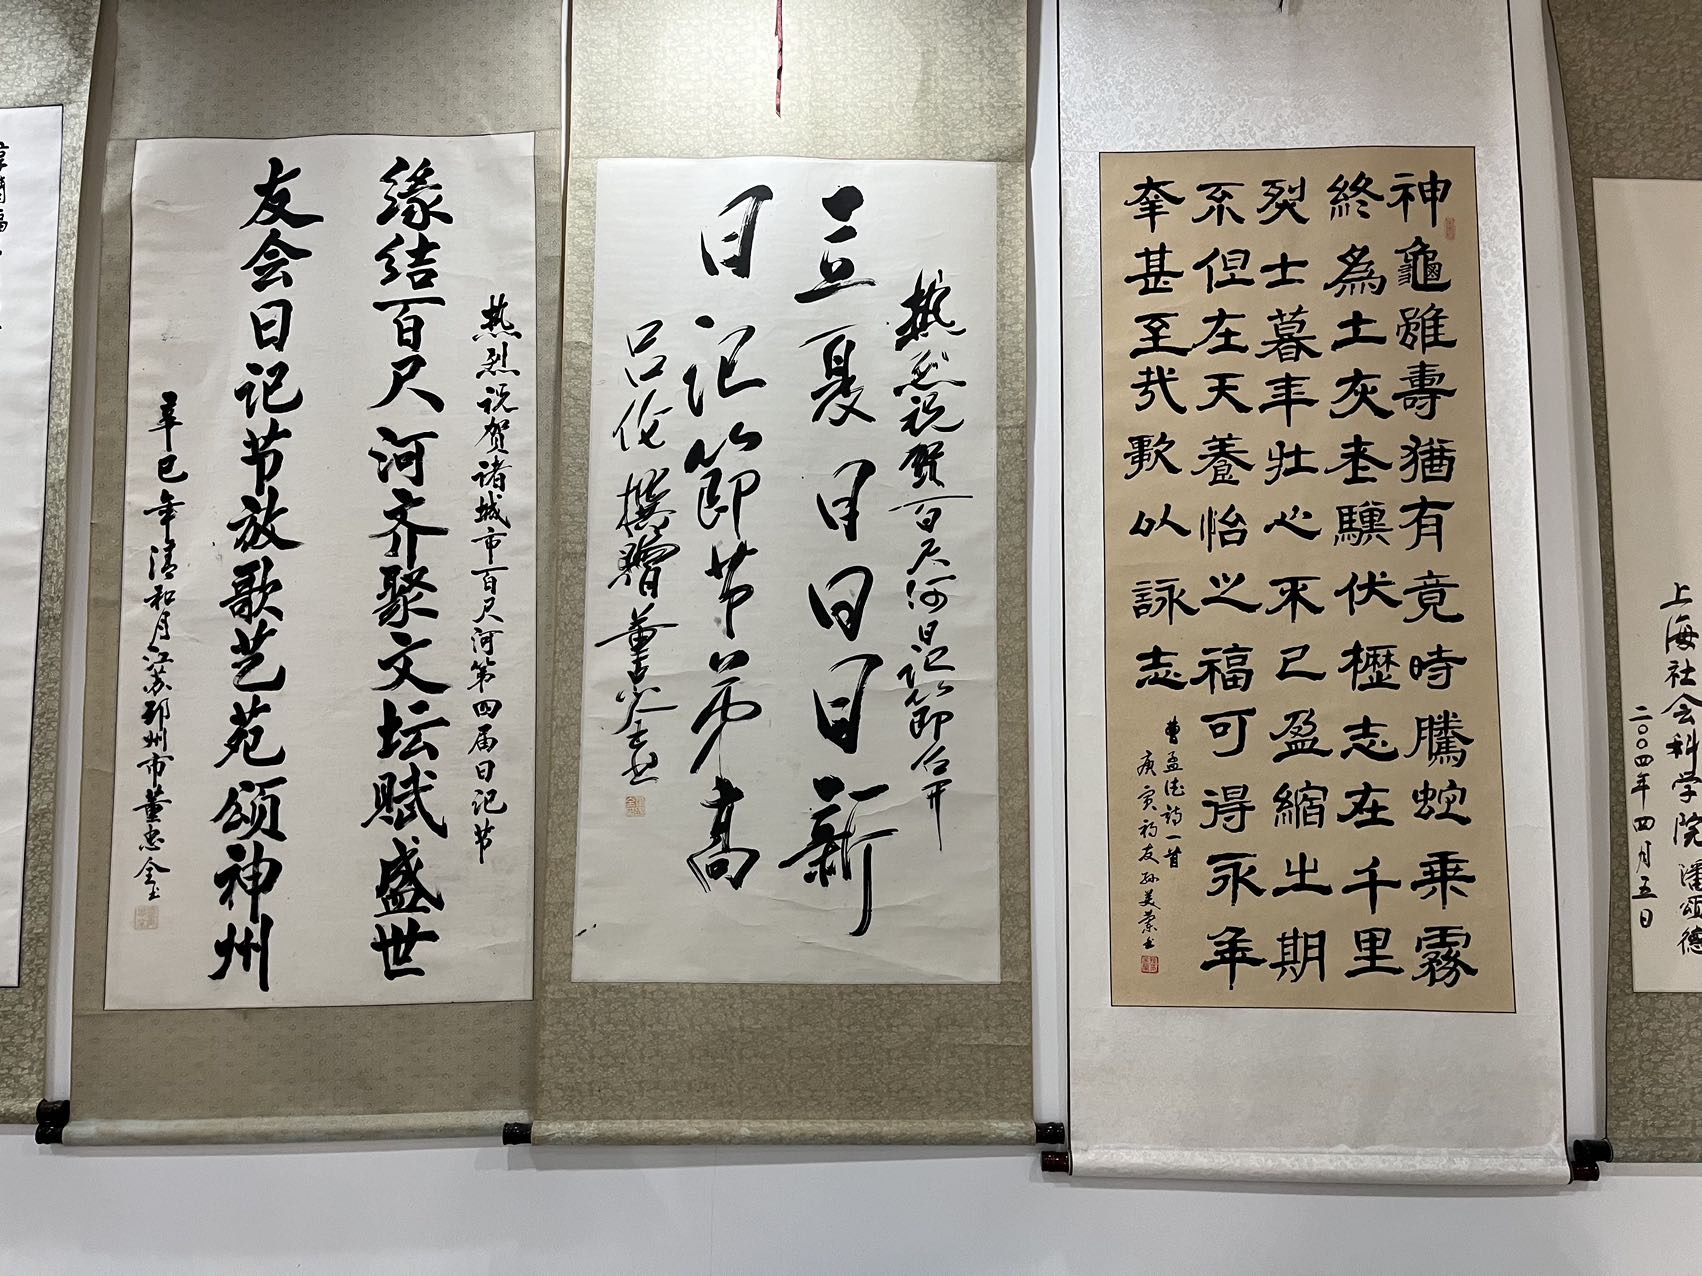 上海社会科学院潘颂德
二〇〇四年四月五日
神龜雖壽猶有竟時騰蛇乗霧
終為土灰老驥伏櫪志在千里
烈士暮年壮心不已盈縮之期
不但在天養怡之福可得永年
幸甚至哉歌以詠志
曹孟德诗一首
庚寅初友孙美荣书
热烈祝贺百尺河日记節召开
立夏日日日新
日记節节节高
吕伦撰赠
热烈祝贺诸城市百尺河第四届日记节
缘结百尺河齐聚文坛赋盛世
友会日记节放歌艺苑颂神州
辛巳年清和月江苏邳州市董忠全书